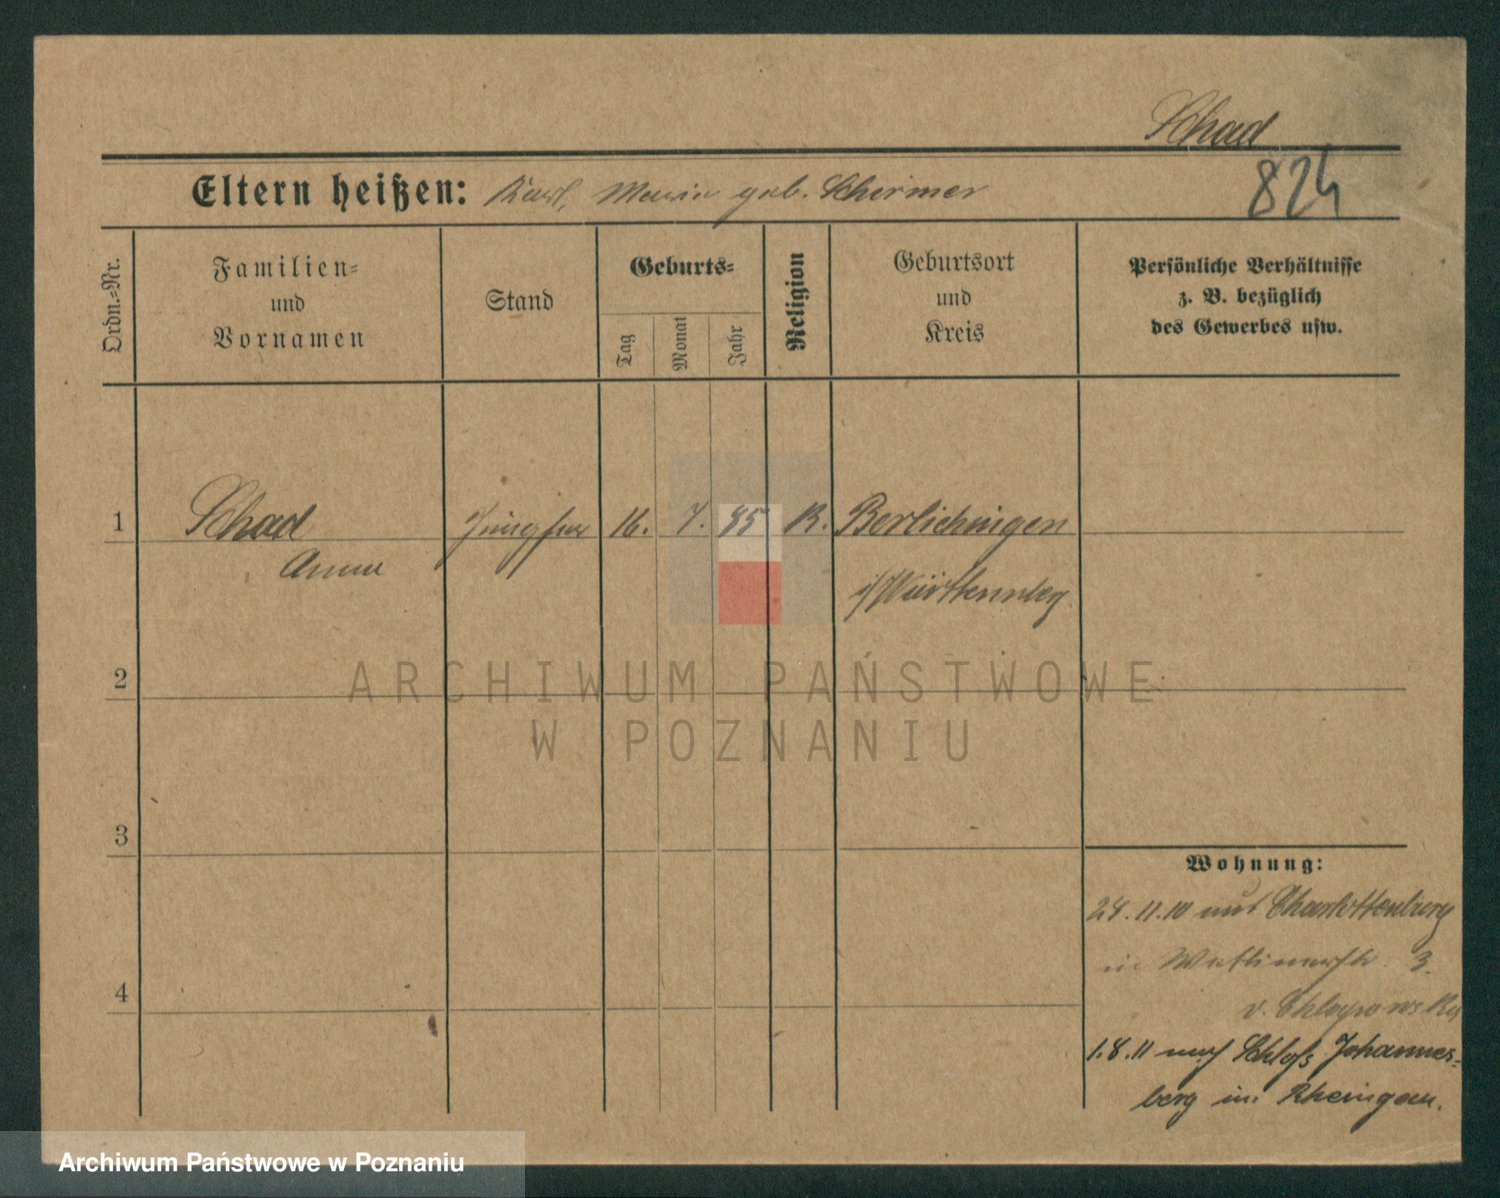 Schad
824
Eltern heißen: Karl, Maria geb. Schirmer
Ordn.=Nr.
Familien=
und
Vornamen
Stand
Geburts=
Tag
Monat
Jahr
Religion
Geburtsort
und
Kreis
Persönliche Verhältnisse
z. B. bezüglich
des Gewerbes usw.
1 Schad Jungfer 16. 7. 85 K. Berlichingen
Anna
i/Württembg
2
ARCHIWUM PAŃSTWOWE
W POZNANIU
3
Wohnung:
28.11.10 aus Charlottenburg
in 3.
v.
4
1.8.11 nach Schloß Johannes-
berg im Rheingau.
Archiwum Państwowe w Poznaniu